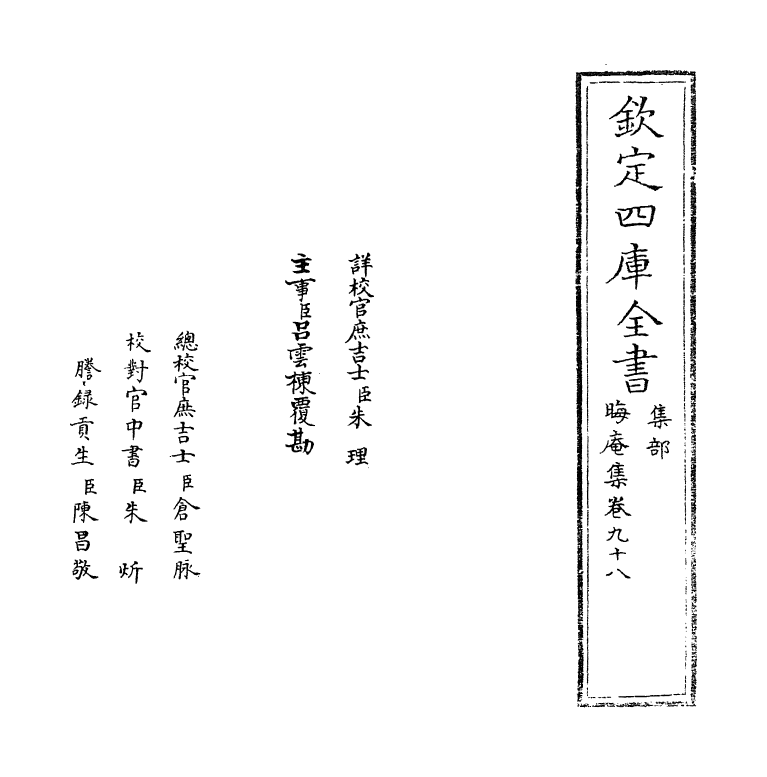 欽定四庫全書
集部
晦庵集卷九十八
詳校官庶吉士臣朱理
主事臣呂雲棟覆勘
總校官庶吉士臣倉聖脉
校對官中書臣朱炘
謄錄貢生臣陳昌敬